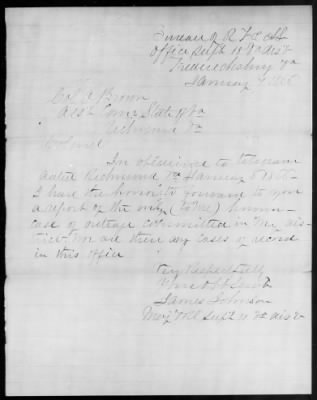 Bureau of R F & A L
Office Supt 10 Dist
Fredericksburg Va
January 7 1866
Col O Brown
Asst Comr State of Va
Richmond Va
Colonel
In obedience to telegram
dated Richmond Va January 5 1866
I have the honor to forward to you
a report of the only (to me) known
case of outrage committed in my dis-
trict nor are there any cases of record
in this office
Very Respectfully
Your Obt Servt
James Johnson
Supt Dist